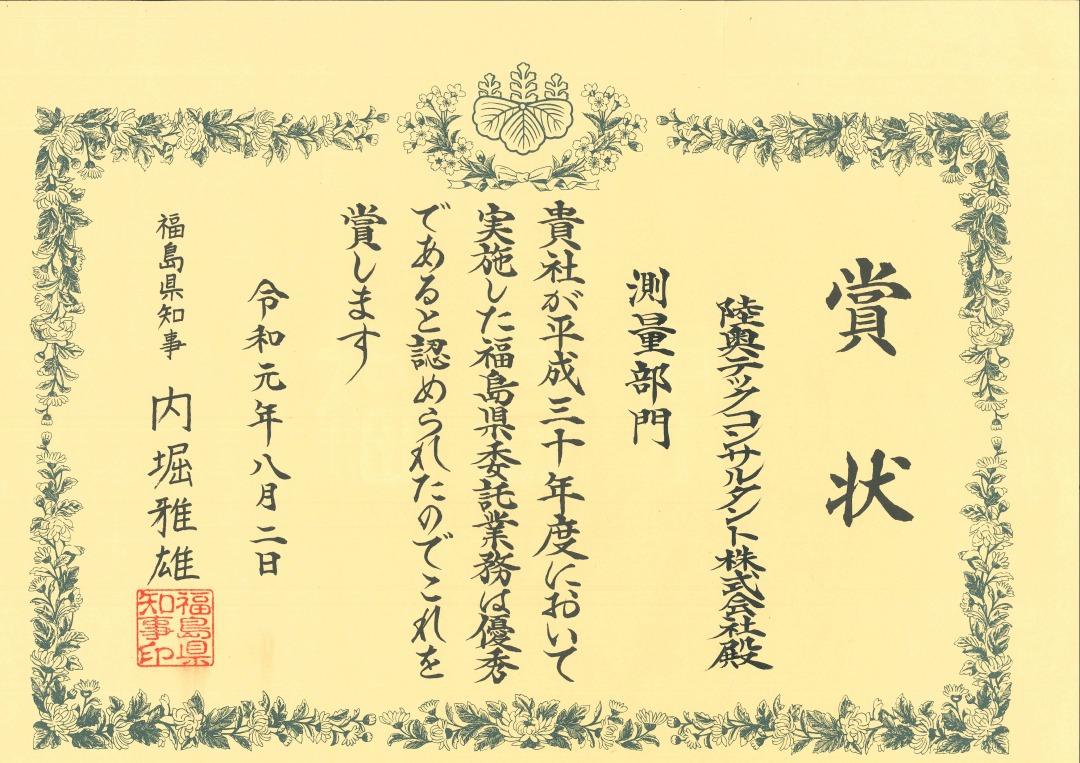 賞状
陸奥テックコンサルタント株式会社殿
測量部門
貴社が平成三十年度において
実施した福島県委託業務は優秀
であると認められたのでこれを
賞します
令和元年八月二日
福島県知事 内堀雅雄
福島県
知事印